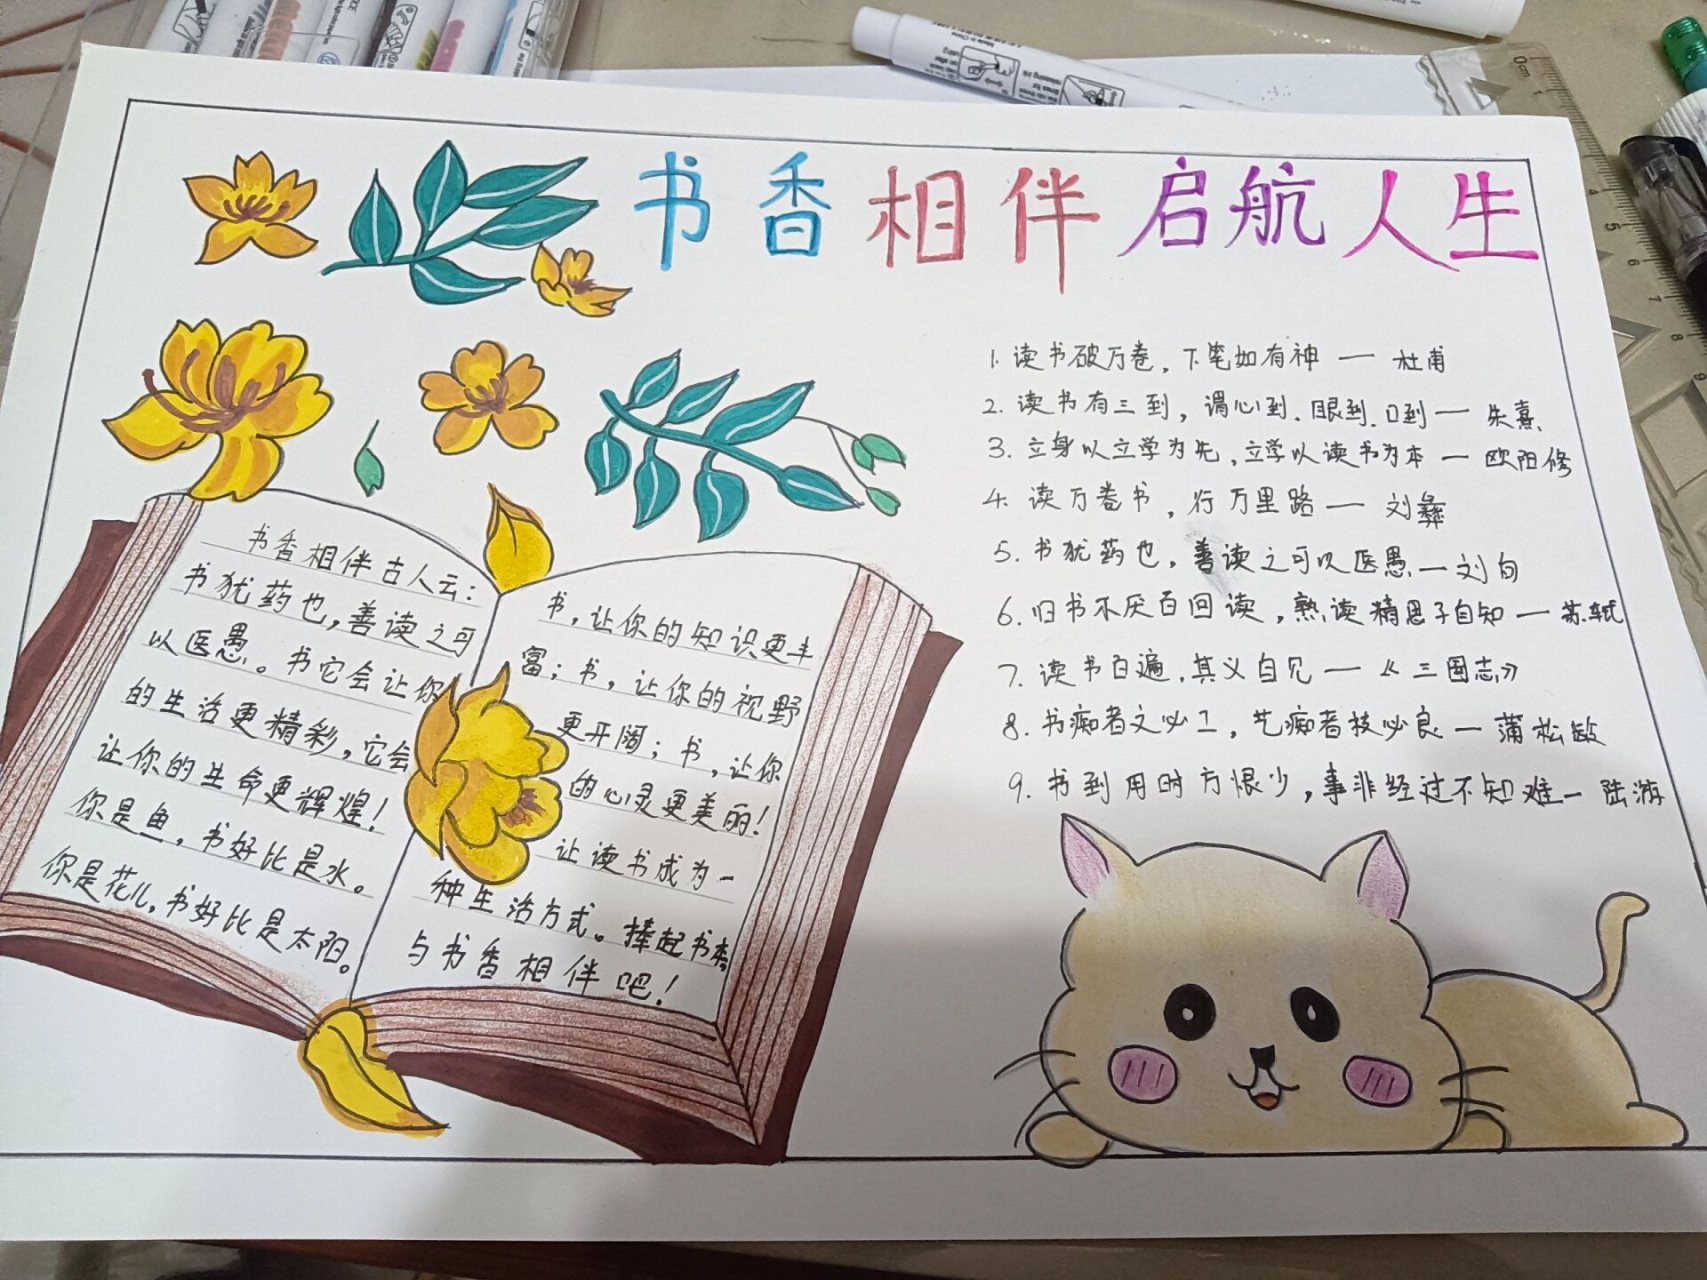 书香相伴 启航人生
1. 读书破万卷，下笔如有神 — 杜甫
2. 读书有三到，谓心到.眼到.口到 — 朱熹
3. 立身以立学为先，立学以读书为本 — 欧阳修
4. 读万卷书，行万里路 — 刘彝
5. 书犹药也，善读之可以医愚 — 刘向
6. 旧书不厌百回读，熟读精思子自知 — 苏轼
7. 读书百遍，其义自见 — 《三国志》
8. 书痴者文必工，艺痴者技必良 — 蒲松龄
9. 书到用时方恨少，事非经过不知难 — 陆游
书香相伴古人云：
书犹药也，善读之可
以医愚。书它会让你
的生活更精彩，它会
让你的生命更辉煌！
你是鱼，书好比是水。
你是花儿，书好比是太阳。
书，让你的知识更丰
富；书，让你的视野
更开阔；书，让你
的心灵更美丽！
让读书成为一
种生活方式。捧起书本
与书香相伴吧！